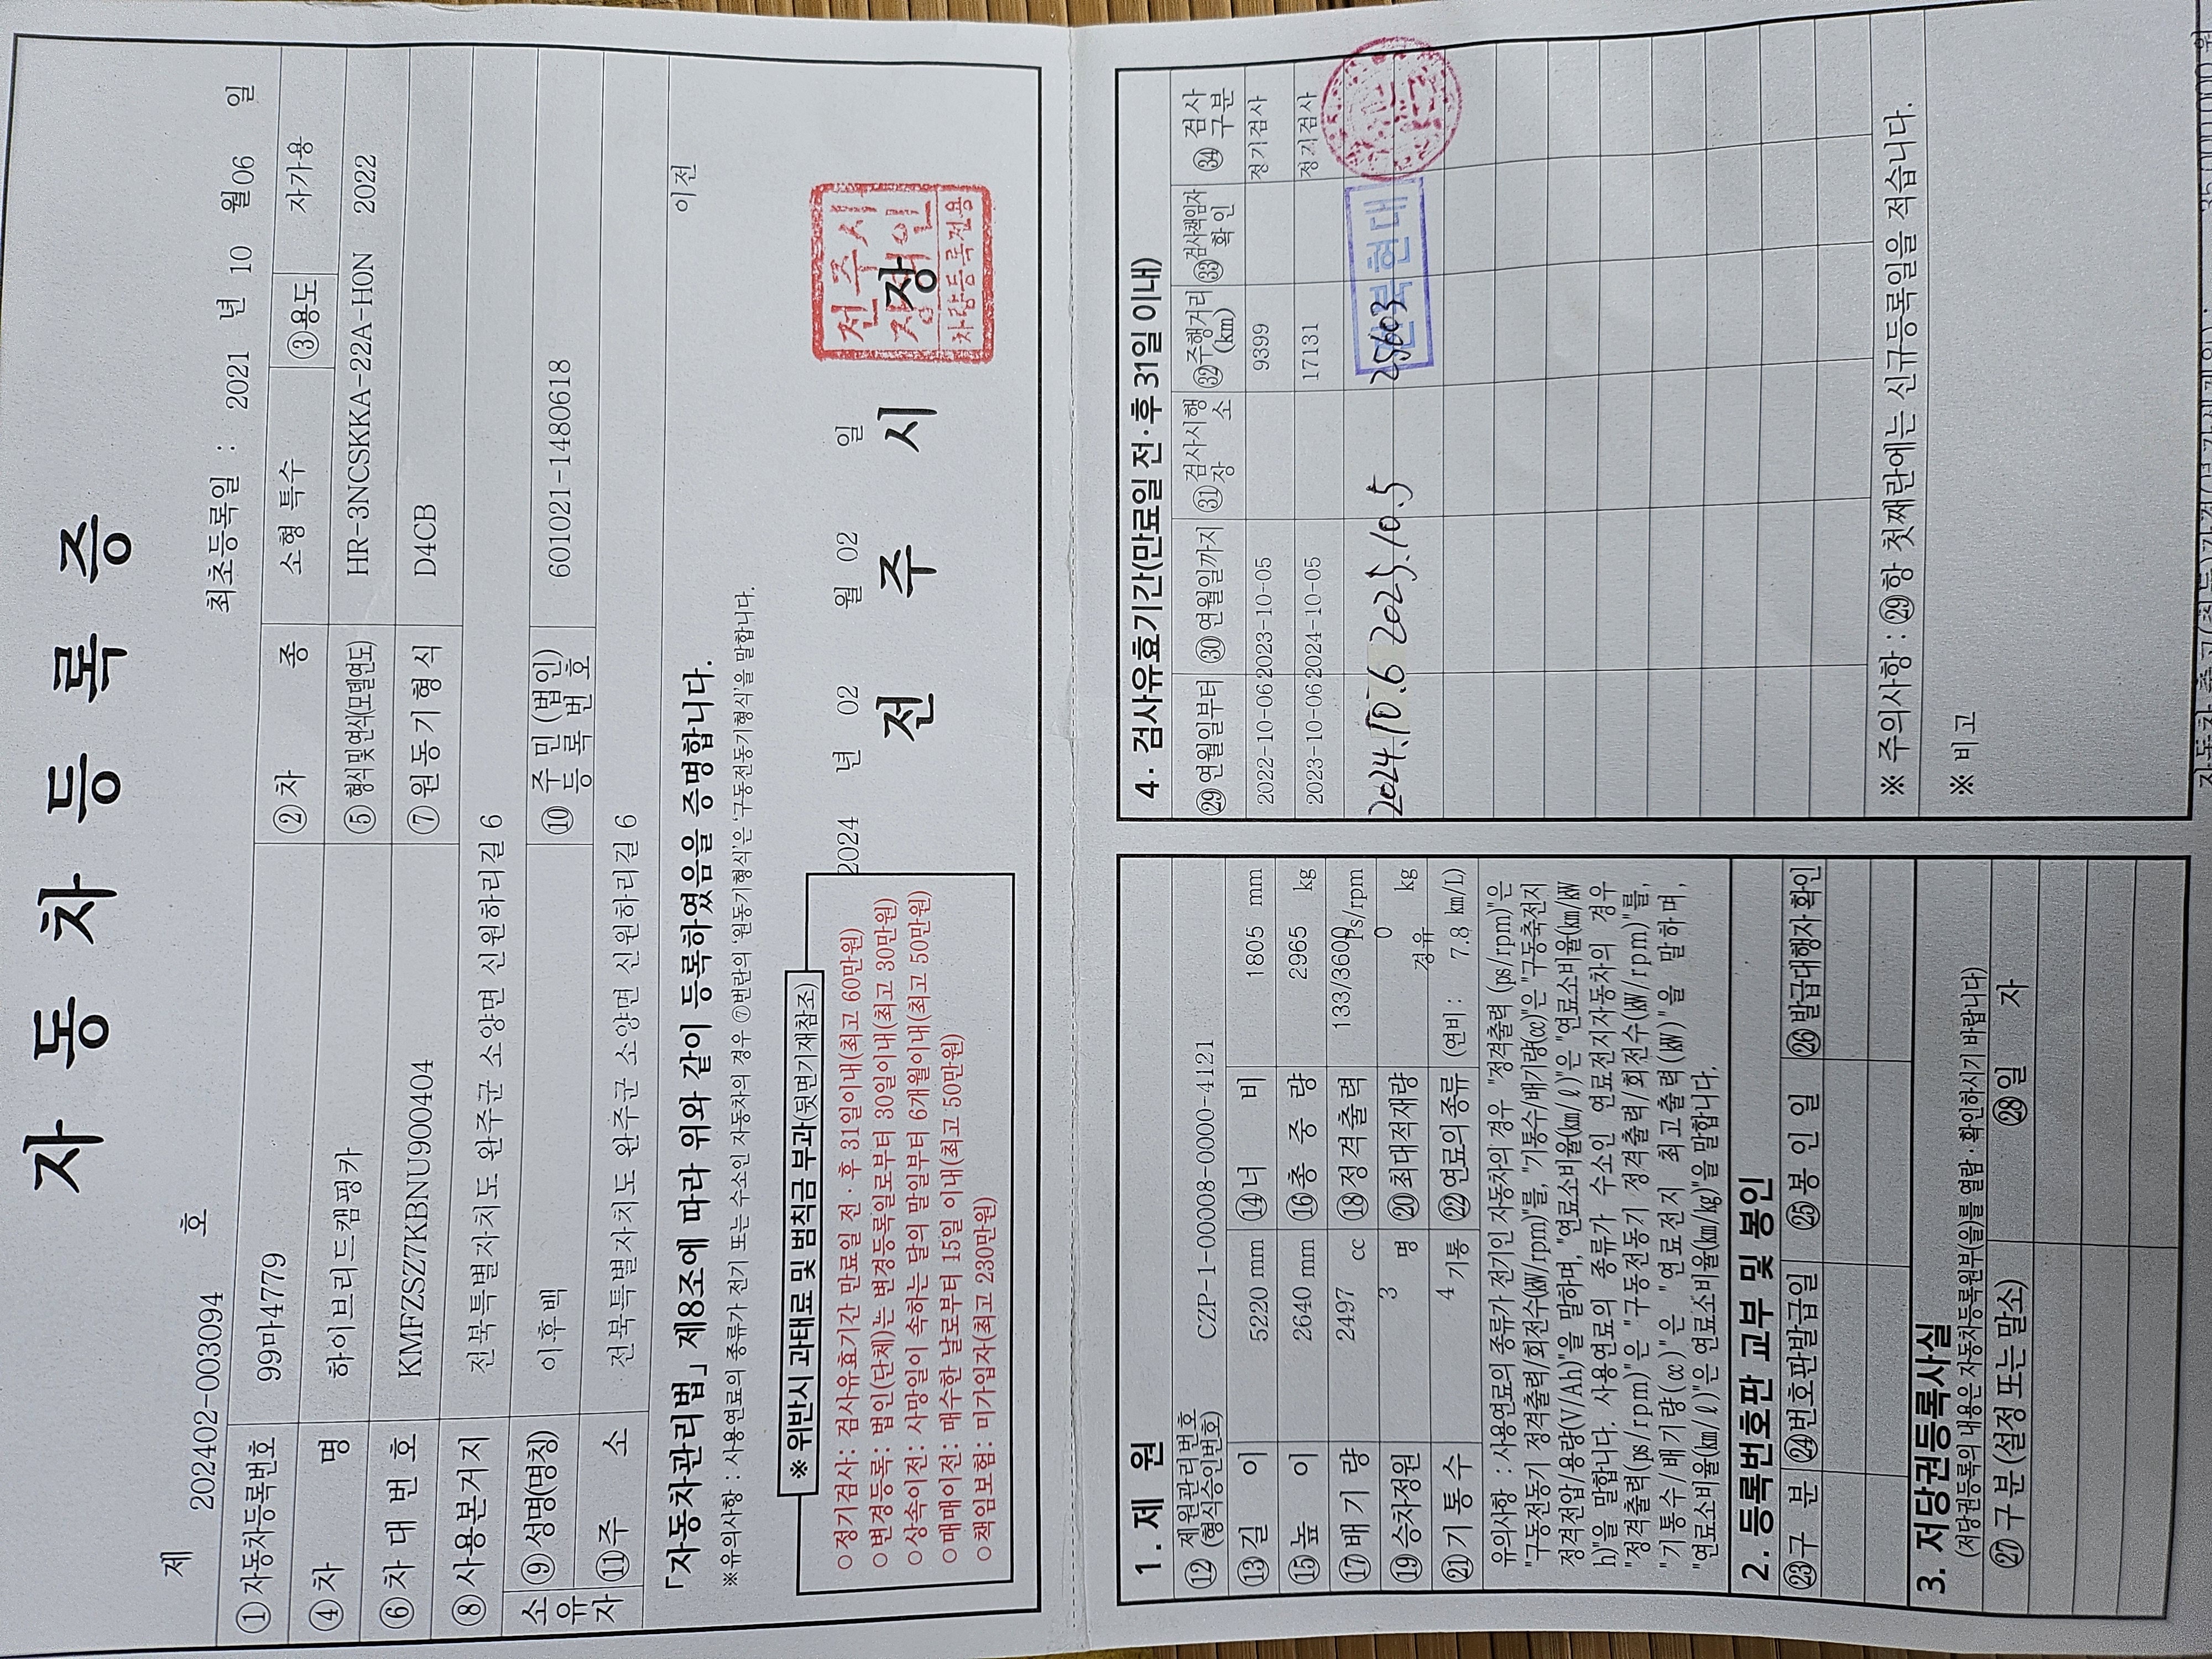 자 동 차 등 록 증
제 202402-003094 호
최초등록일 : 2021 년 10 월 06 일
①자동차등록번호 99마4779 ②차 종 소형 특수 ③용도 자가용
④차 명 하이브리드캠핑카 ⑤형식및연식(모델연도) HR-3NCSKKA-22A-H0N 2022
⑥차 대 번 호 KMFZSZ7KBNU900404 ⑦원 동 기 형 식 D4CB
⑧사용본거지 전북특별자치도 완주군 소양면 신원하리길 6
소유자 ⑨성명(명칭) 이후백 ⑩주 민 (법인) 등 록 번 호 601021-1480618
⑪주 소 전북특별자치도 완주군 소양면 신원하리길 6
「자동차관리법」 제8조에 따라 위와 같이 등록하였음을 증명합니다.
이전
※유의사항 : 사용연료의 종류가 전기 또는 수소인 자동차의 경우 ⑦번란의 '원동기형식'은 '구동전동기형식'을 말합니다.
※ 위반시 과태료 및 범칙금 부과(뒷면기재참조)
○정기검사: 검사유효기간 만료일 전·후 31일이내(최고 60만원)
○변경등록: 법인(단체)는 변경등록일로부터 30일이내(최고 30만원)
○상속이전: 사망일이 속하는 달의 말일부터 6개월이내(최고 50만원)
○매매이전: 매수한 날로부터 15일 이내(최고 50만원)
○책임보험: 미가입자(최고 230만원)
2024 년 02 월 02 일
전 주 시 장
전주시
장색인
차량등록전용
1. 제 원
⑫제원관리번호 (형식승인번호) CZP-1-00008-0000-4121
⑬길 이 5220 mm ⑭너 비 1805 mm
⑮높 이 2640 mm ⑯총 중 량 2965 kg
⑰배 기 량 2497 cc ⑱정격출력 133/3600 Ps/rpm
⑲승차정원 3 명 ⑳최대적재량 0 kg
㉑기 통 수 4 기통 ㉒연료의 종류 경유 (연비 : 7.8 km/L)
유의사항 : 사용연료의 종류가 전기인 자동차의 경우 "정격출력 (ps/rpm)"은
"구동전동기 정격출력/회전수(㎾/rpm)"를, "기통수/배기량(cc)"은 "구동축전지
정격전압/용량(V/Ah)"을 말하며, "연료소비율(㎞/ℓ)"은 "연료소비율(㎞/㎾
h)"을 말합니다. 사용연료의 종류가 수소인 연료전지자동차의 경우
"정격출력(ps/rpm)"은 "구동전동기 정격출력/회전수(㎾/rpm)"를,
"기통수/배기량(cc)"은 "연료전지 최고출력(㎾)"을 말하며,
"연료소비율(㎞/ℓ)"은 연료소비율(㎞/kg)"을 말합니다.
2. 등록번호판 교부 및 봉인
㉓구 분 ㉔번호판발급일 ㉕봉 인 일 ㉖발급대행자확인
3. 저당권등록사실
(저당권등록의 내용은 자동차등록원부(을)를 열람·확인하시기 바랍니다)
㉗구 분 (설정 또는 말소) ㉘일 자
4. 검사유효기간(만료일 전·후 31일 이내)
㉙연월일부터 ㉚연월일까지 ㉛검사시행장소 ㉜주행거리(km) ㉝검사책임자확인 ㉞검사구분
2022-10-06 2023-10-05 9399 정기검사
2023-10-06 2024-10-05 17131 정기검사
2024.10.6 2025.10.5 25603
현대
※ 주의사항 : ㉙항 첫째란에는 신규등록일을 적습니다.
※ 비고